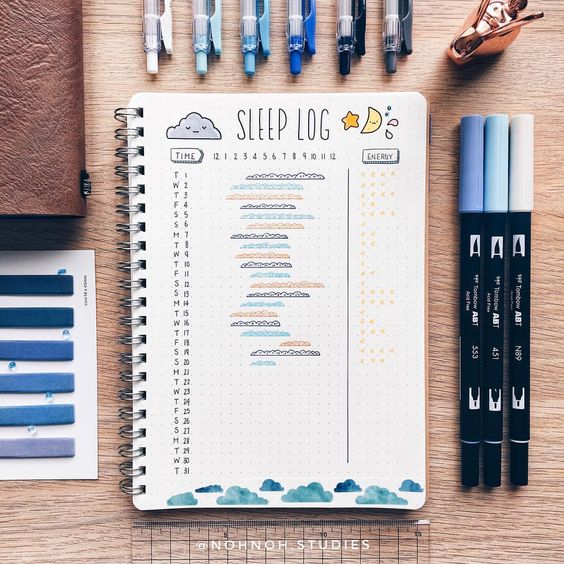 SLEEP LOG
TIME 12 1 2 3 4 5 6 7 8 9 10 11 12 ENERGY
T 1
W 2
T 3
F 4
S 5
S 6
M 7
T 8
W 9
T 10
F 11
S 12
S 13
M 14
T 15
W 16
T 17
F 18
S 19
S 20
M 21
T 22
W 23
T 24
F 25
S 26
S 27
M 28
T 29
W 30
T 31
Tombow ABT
Acid Free
553
Tombow ABT
Acid Free
451
Tombow ABT
Acid Free
N89
15
@NOHNOH.STUDIES